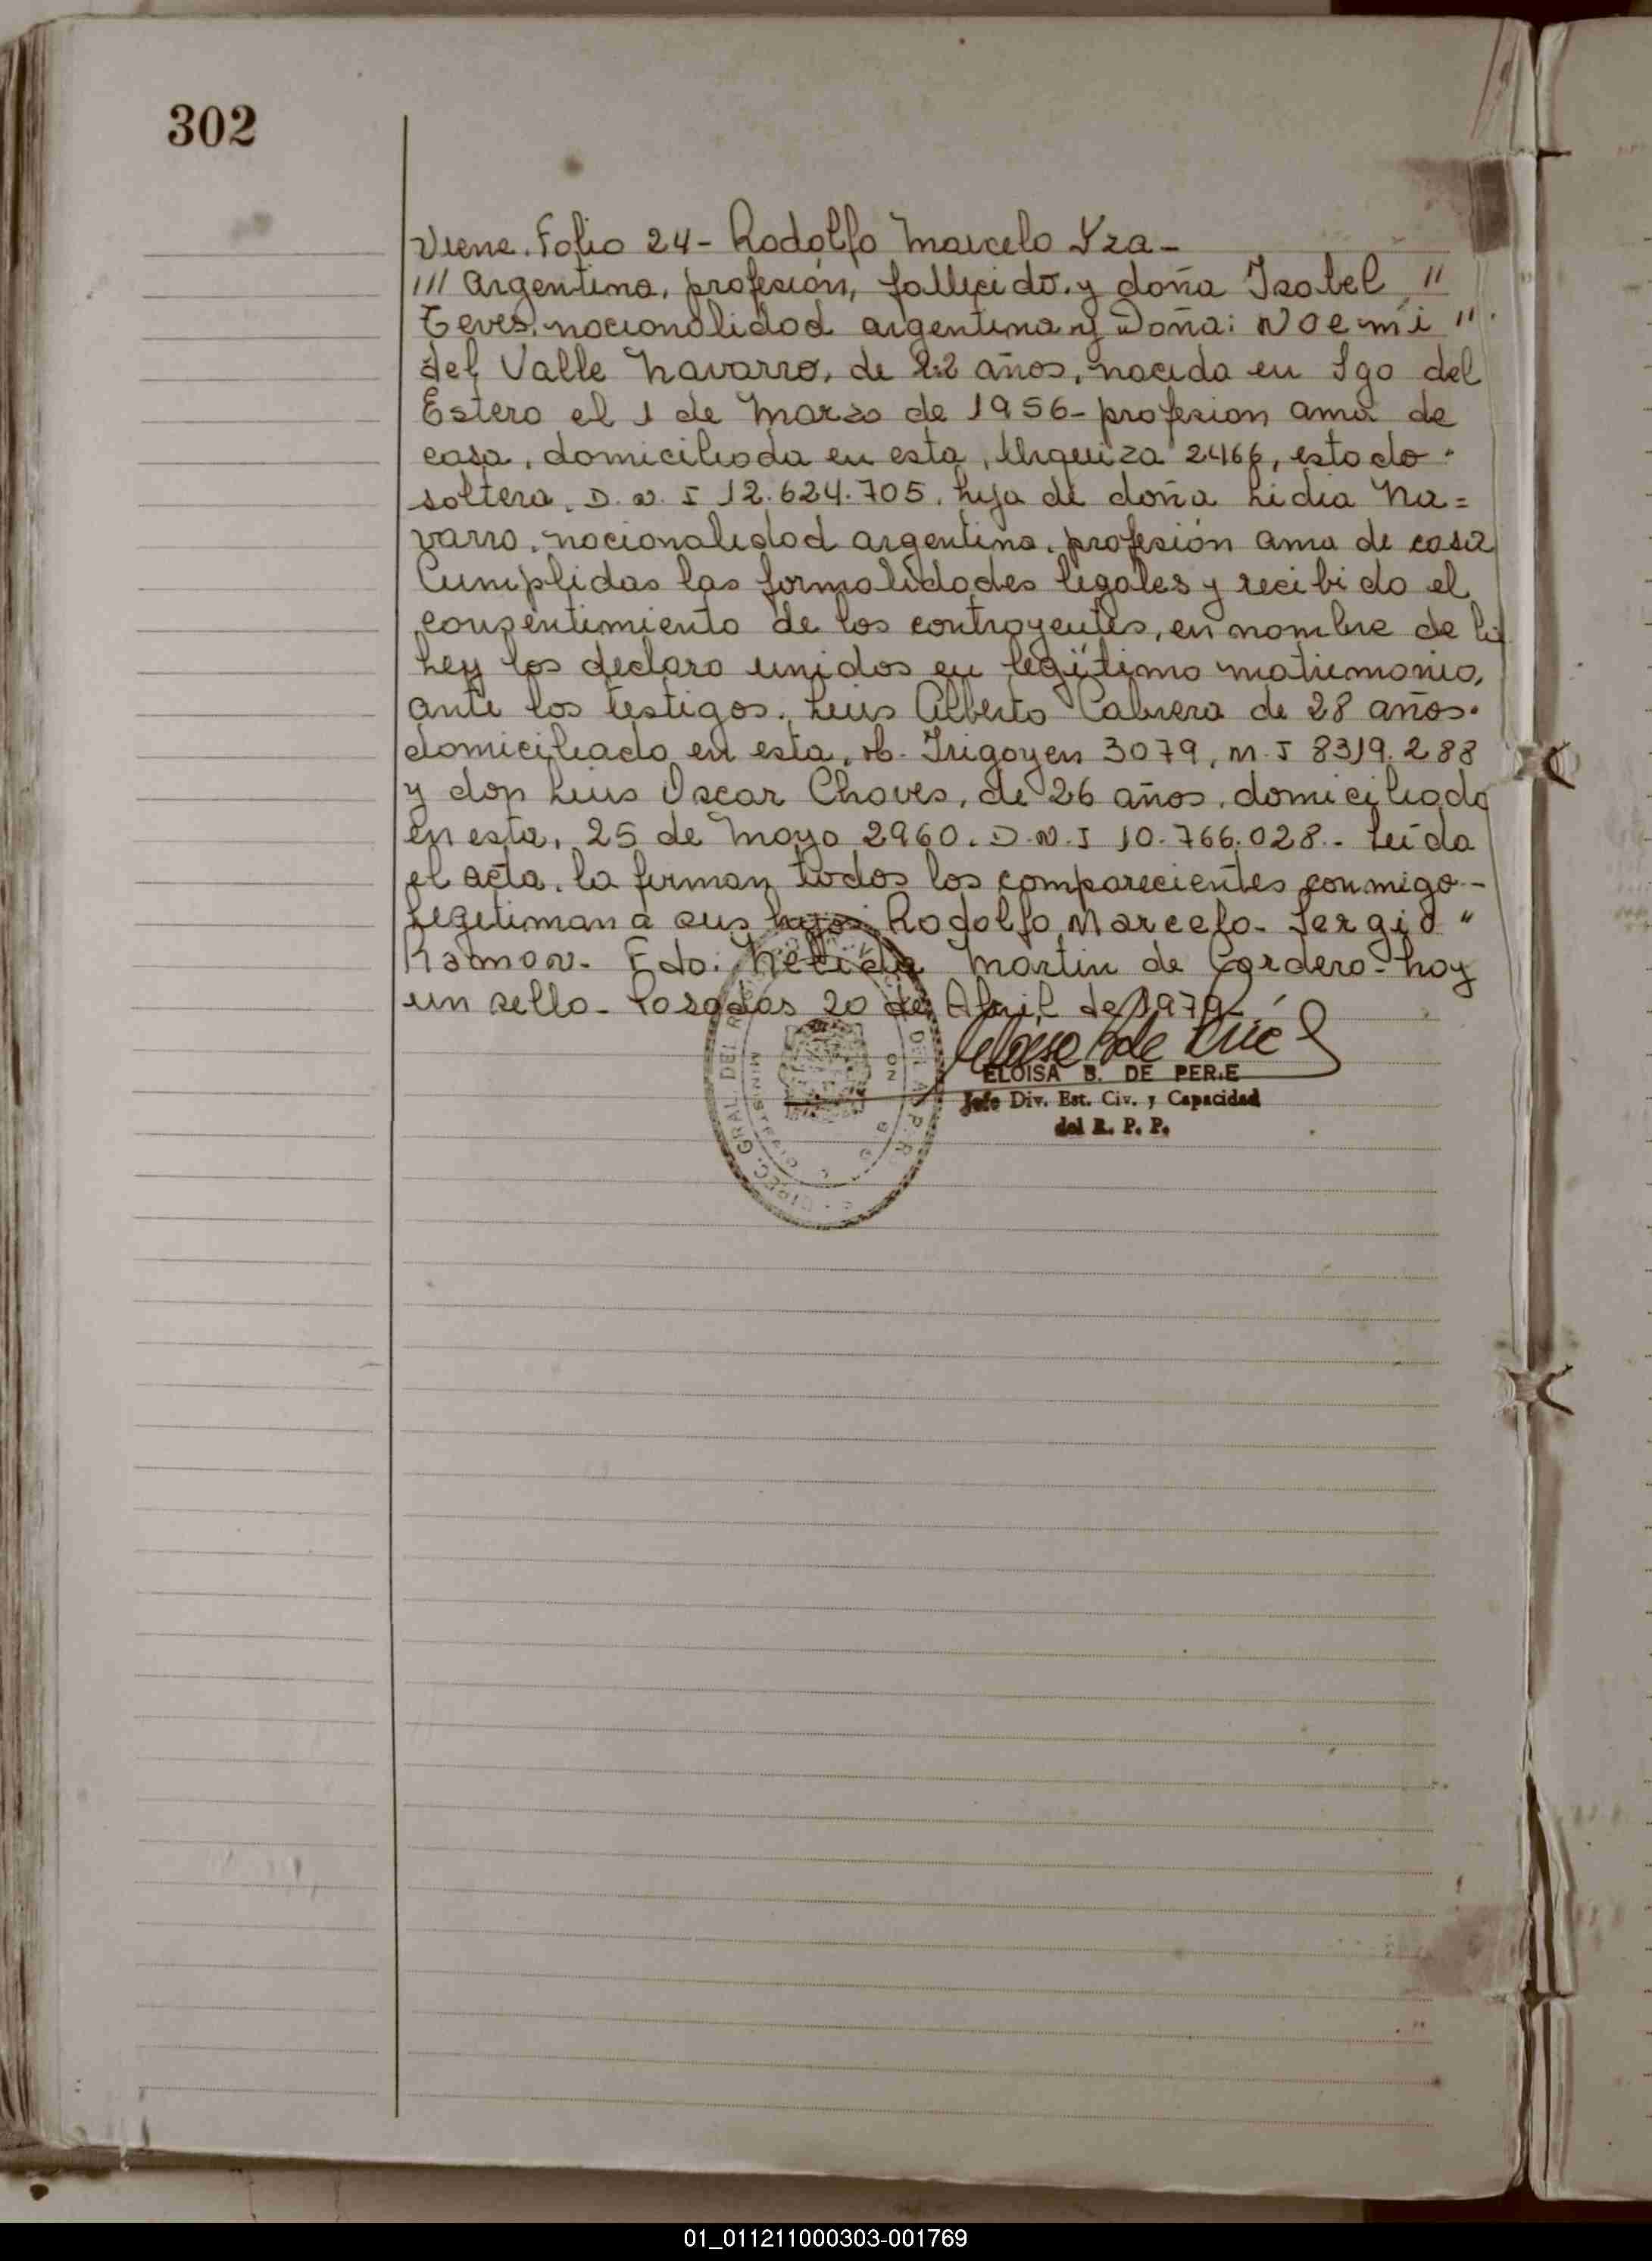 302
Viene. Folio 24 - Rodolfo Marcelo Yza -
/// Argentina, profesión, fallecido. y doña Isabel "
Teves. nacionalidad argentina y Doña: Noemi "
del Valle Navarro, de 22 años, nacida en Sgo del
Estero el 1 de Marzo de 1956 - profesion ama de
casa, domiciliada en esta, Urquiza 2466, estado
soltera. D.N.I 12.624.705. hija de doña Lidia Na=
varro. nacionalidad argentina. profesión ama de casa
Cumplidas las formalidades legales y recibido el
consentimiento de los contrayentes, en nombre de la
Ley los declaro unidos en legitimo matrimonio,
ante los testigos. Luis Alberto Cabrera de 28 años.
domiciliado en esta, H. Irigoyen 3079, M.I 8319.288
y don Luis Oscar Chaves, de 26 años, domiciliado
en esta, 25 de Mayo 2960. D.N.I 10.766.028.- Leída
el acta. la firman todos los comparecientes conmigo -
Legitiman a sus hijos: Rodolfo Marcelo - Sergio "
Ramon. Fdo: Nélida Martin de Cordero - hay
un sello - Posadas 20 de Abril de 1979 -
ELOISA B. DE PERIE
Jefe Div. Est. Civ. y Capacidad
del R. P. P.
DIREC. GRAL. DEL R
01_011211000303-001769